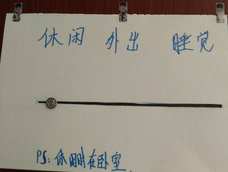 休闲 外出 睡觉
PS:休闲在卧室